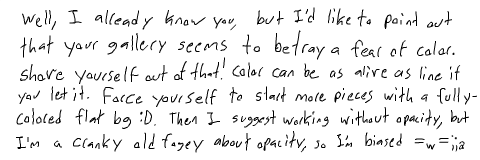 Well, I already know you, but I'd like to point out
that your gallery seems to betray a fear of color.
Shove yourself out of that! Color can be as alive as line if
you let it. Force yourself to start more pieces with a fully-
colored flat bg :D. Then I suggest working without opacity, but
I'm a cranky old fogey about opacity, so I'm biased =w=;;;a